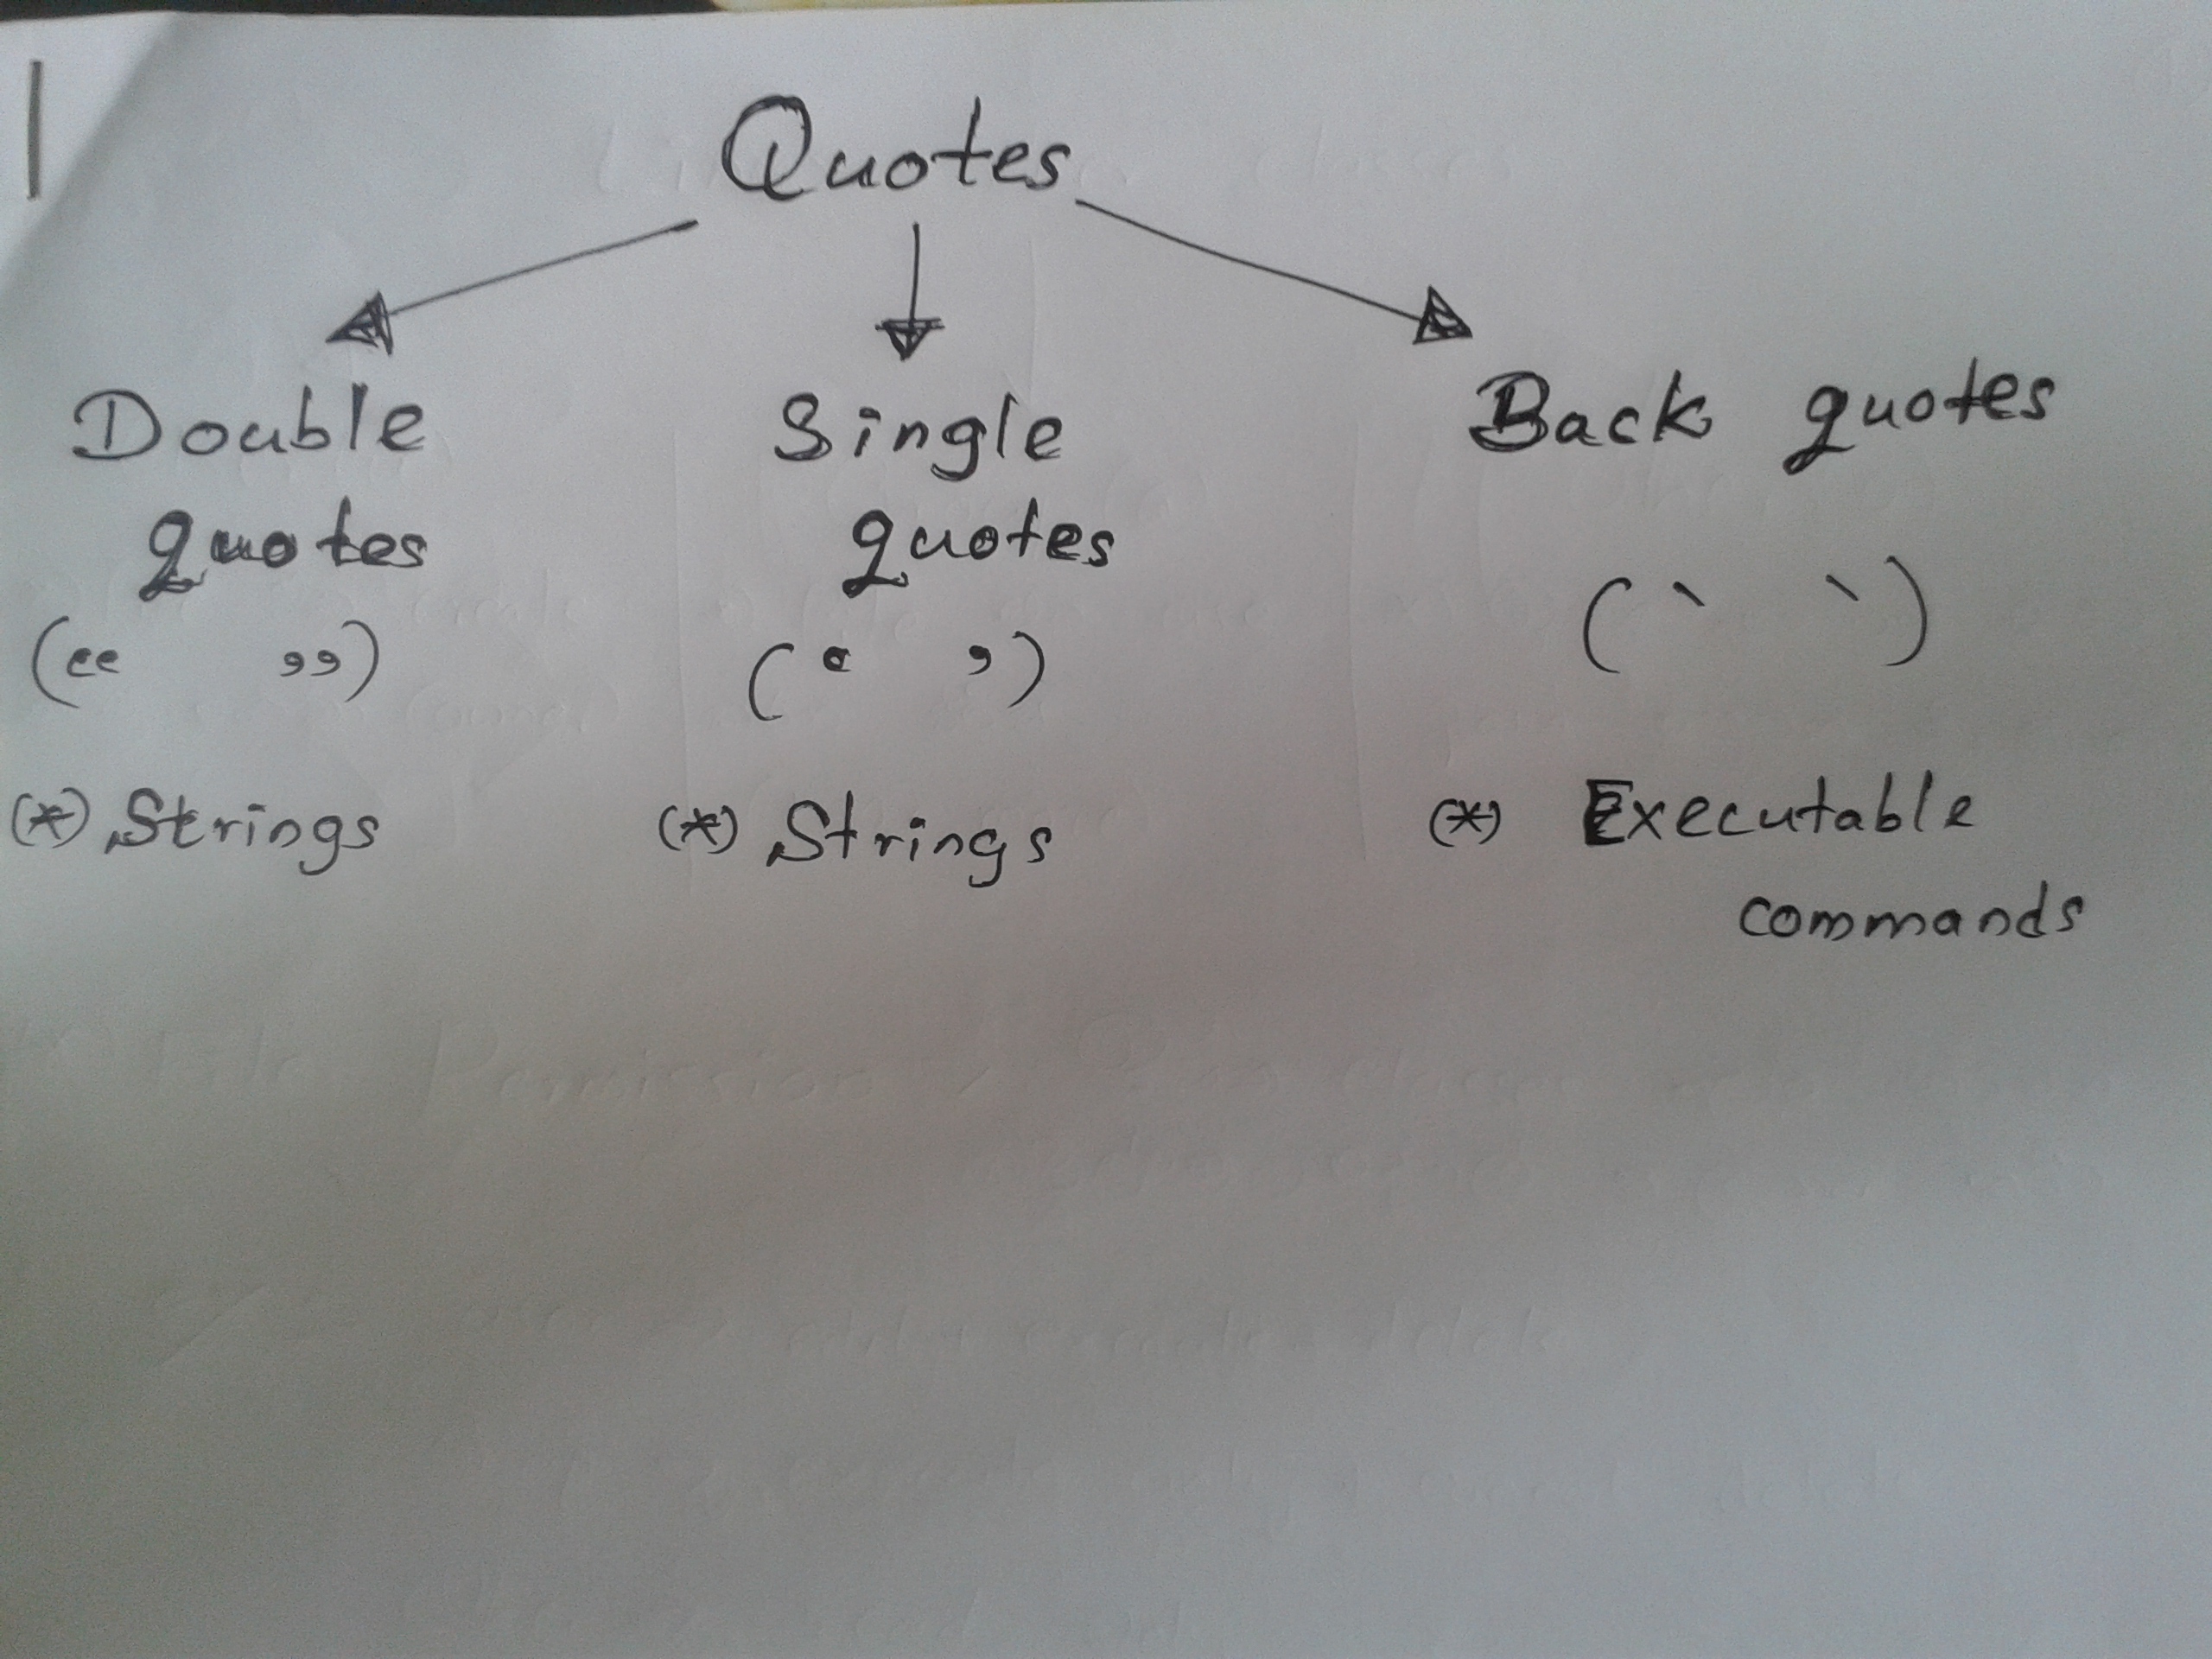 Quotes
Double
quotes
(“ ”)
(*) Strings
Single
quotes
(‘ ’)
(*) Strings
Back quotes
(` `)
(*) Executable
commands